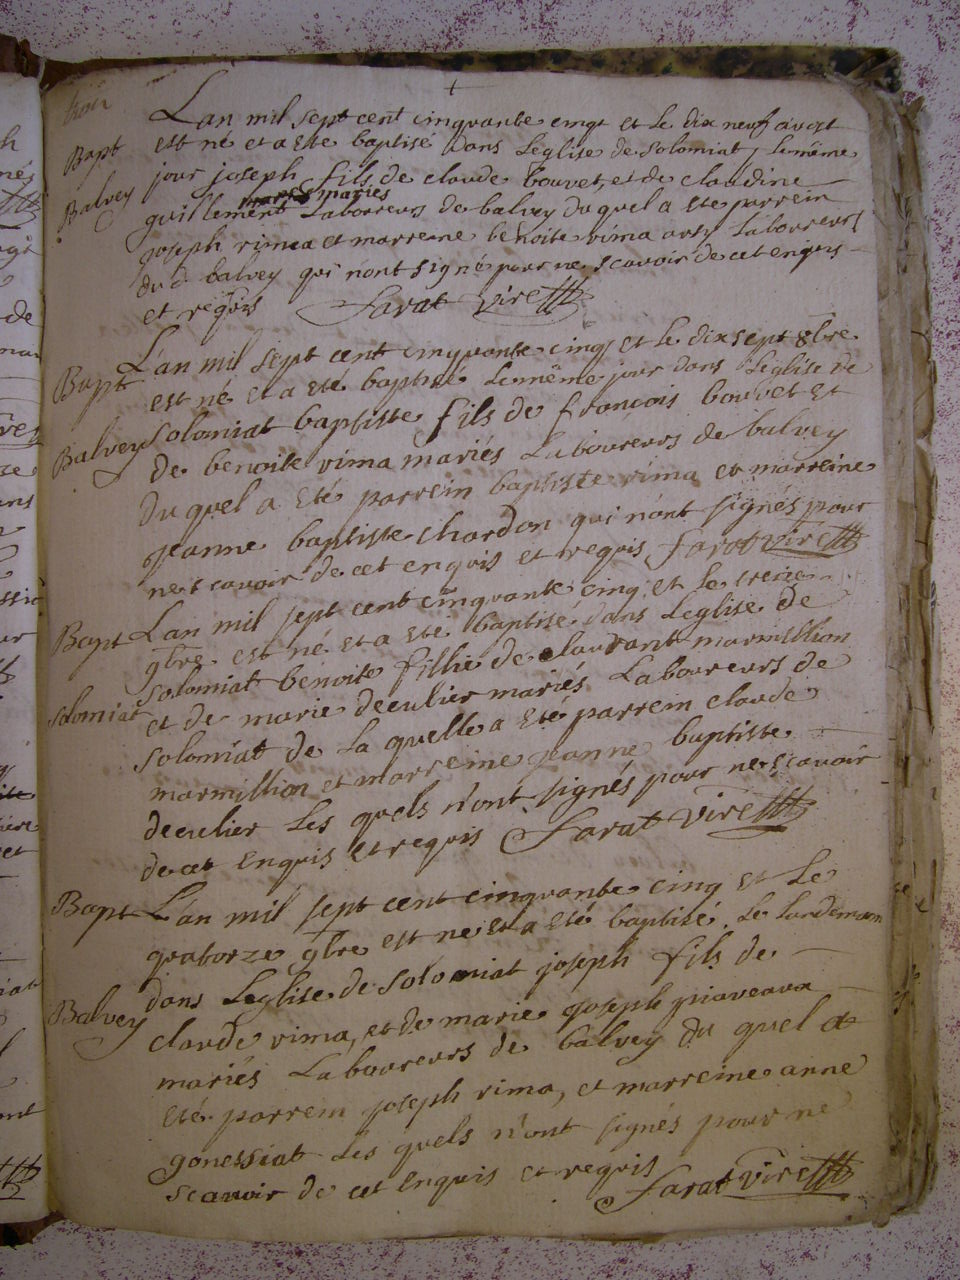 trois
Bapt
Balvey
Lan mil sept cent cinquante cinq et le dix neuf avost
est né et a eté baptisé dans Leglise de Soloniat, le même
jour joseph fils de claude bouvet, et de claudine
mariés
guillement Laboureurs de balvey du quel a ete parrein
joseph rima et marreine benoite rima aussy Laboureurs
du d balvey qui n'ont signé pour ne scavoir de cet enquis
et requis Farat vire
Bapt
Balvey
L'an mil sept cent cinquante cinq et le dixsept 8bre
est né et a eté baptisé le même jour dans Leglise de
Soloniat baptiste fils de francois bouvet et
de benoite rima mariés Laboureurs de balvey
du quel a eté parrein baptiste rima et marreine
jeanne baptiste chardon qui n'ont signés pour
ne scavoir de cet enquis et requis Farat vire
Bapt
Soloniat
Lan mil sept cent cinquante cinq et le treize
9bre est né et a eté baptisé dans Leglise de
Soloniat benoite fillie de claudant marmillion
et de marie deculier mariés Laboureurs de
Soloniat de la quelle a eté parrein claude
marmillion et marreine jeanne baptiste
deculier Les quels n'ont signés pour ne scavoir
de cet enquis et requis Farat vire
Bapt
Balvey
L'an mil sept cent cinquante cinq et Le
quatorze 9bre est né et a eté baptisé Le landemain
dans Leglise de Soloniat joseph fils de
claude rima, et de marie joseph piaveaux
mariés Laboureurs de balvey du quel a
eté parrein joseph rima, et marreine anne
gonessiat Les quels n'ont signés pour ne
scavoir de cet enquis et requis Farat vire